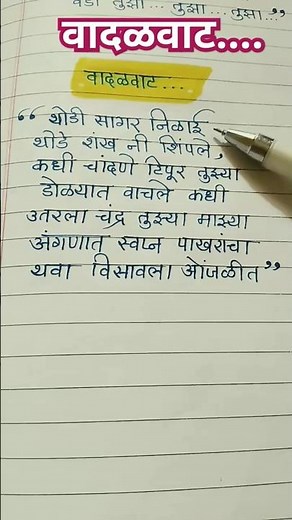 वेडी तुझी... तुझा... तुझा..."
वादळवाट....
वादळवाट...
“ थोडी सागर निळाई
थोडे शंख नी शिंपले,
कधी चांदणे टिपूर तुझ्या
डोळयात वाचले कधी
उतरला चंद्र तुझ्या माझ्या
अंगणात स्वप्न पाखरांचा
थवा विसावला ओंजळीत ”